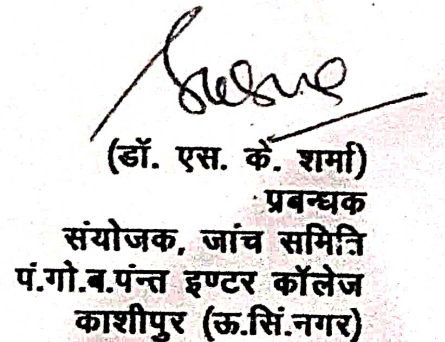 (डॉ. एस. के. शर्मा)
प्रबन्धक
संयोजक, जांच समिति
पं.गो.ब.पंन्त इण्टर कॉलेज
काशीपुर (ऊ.सिं.नगर)